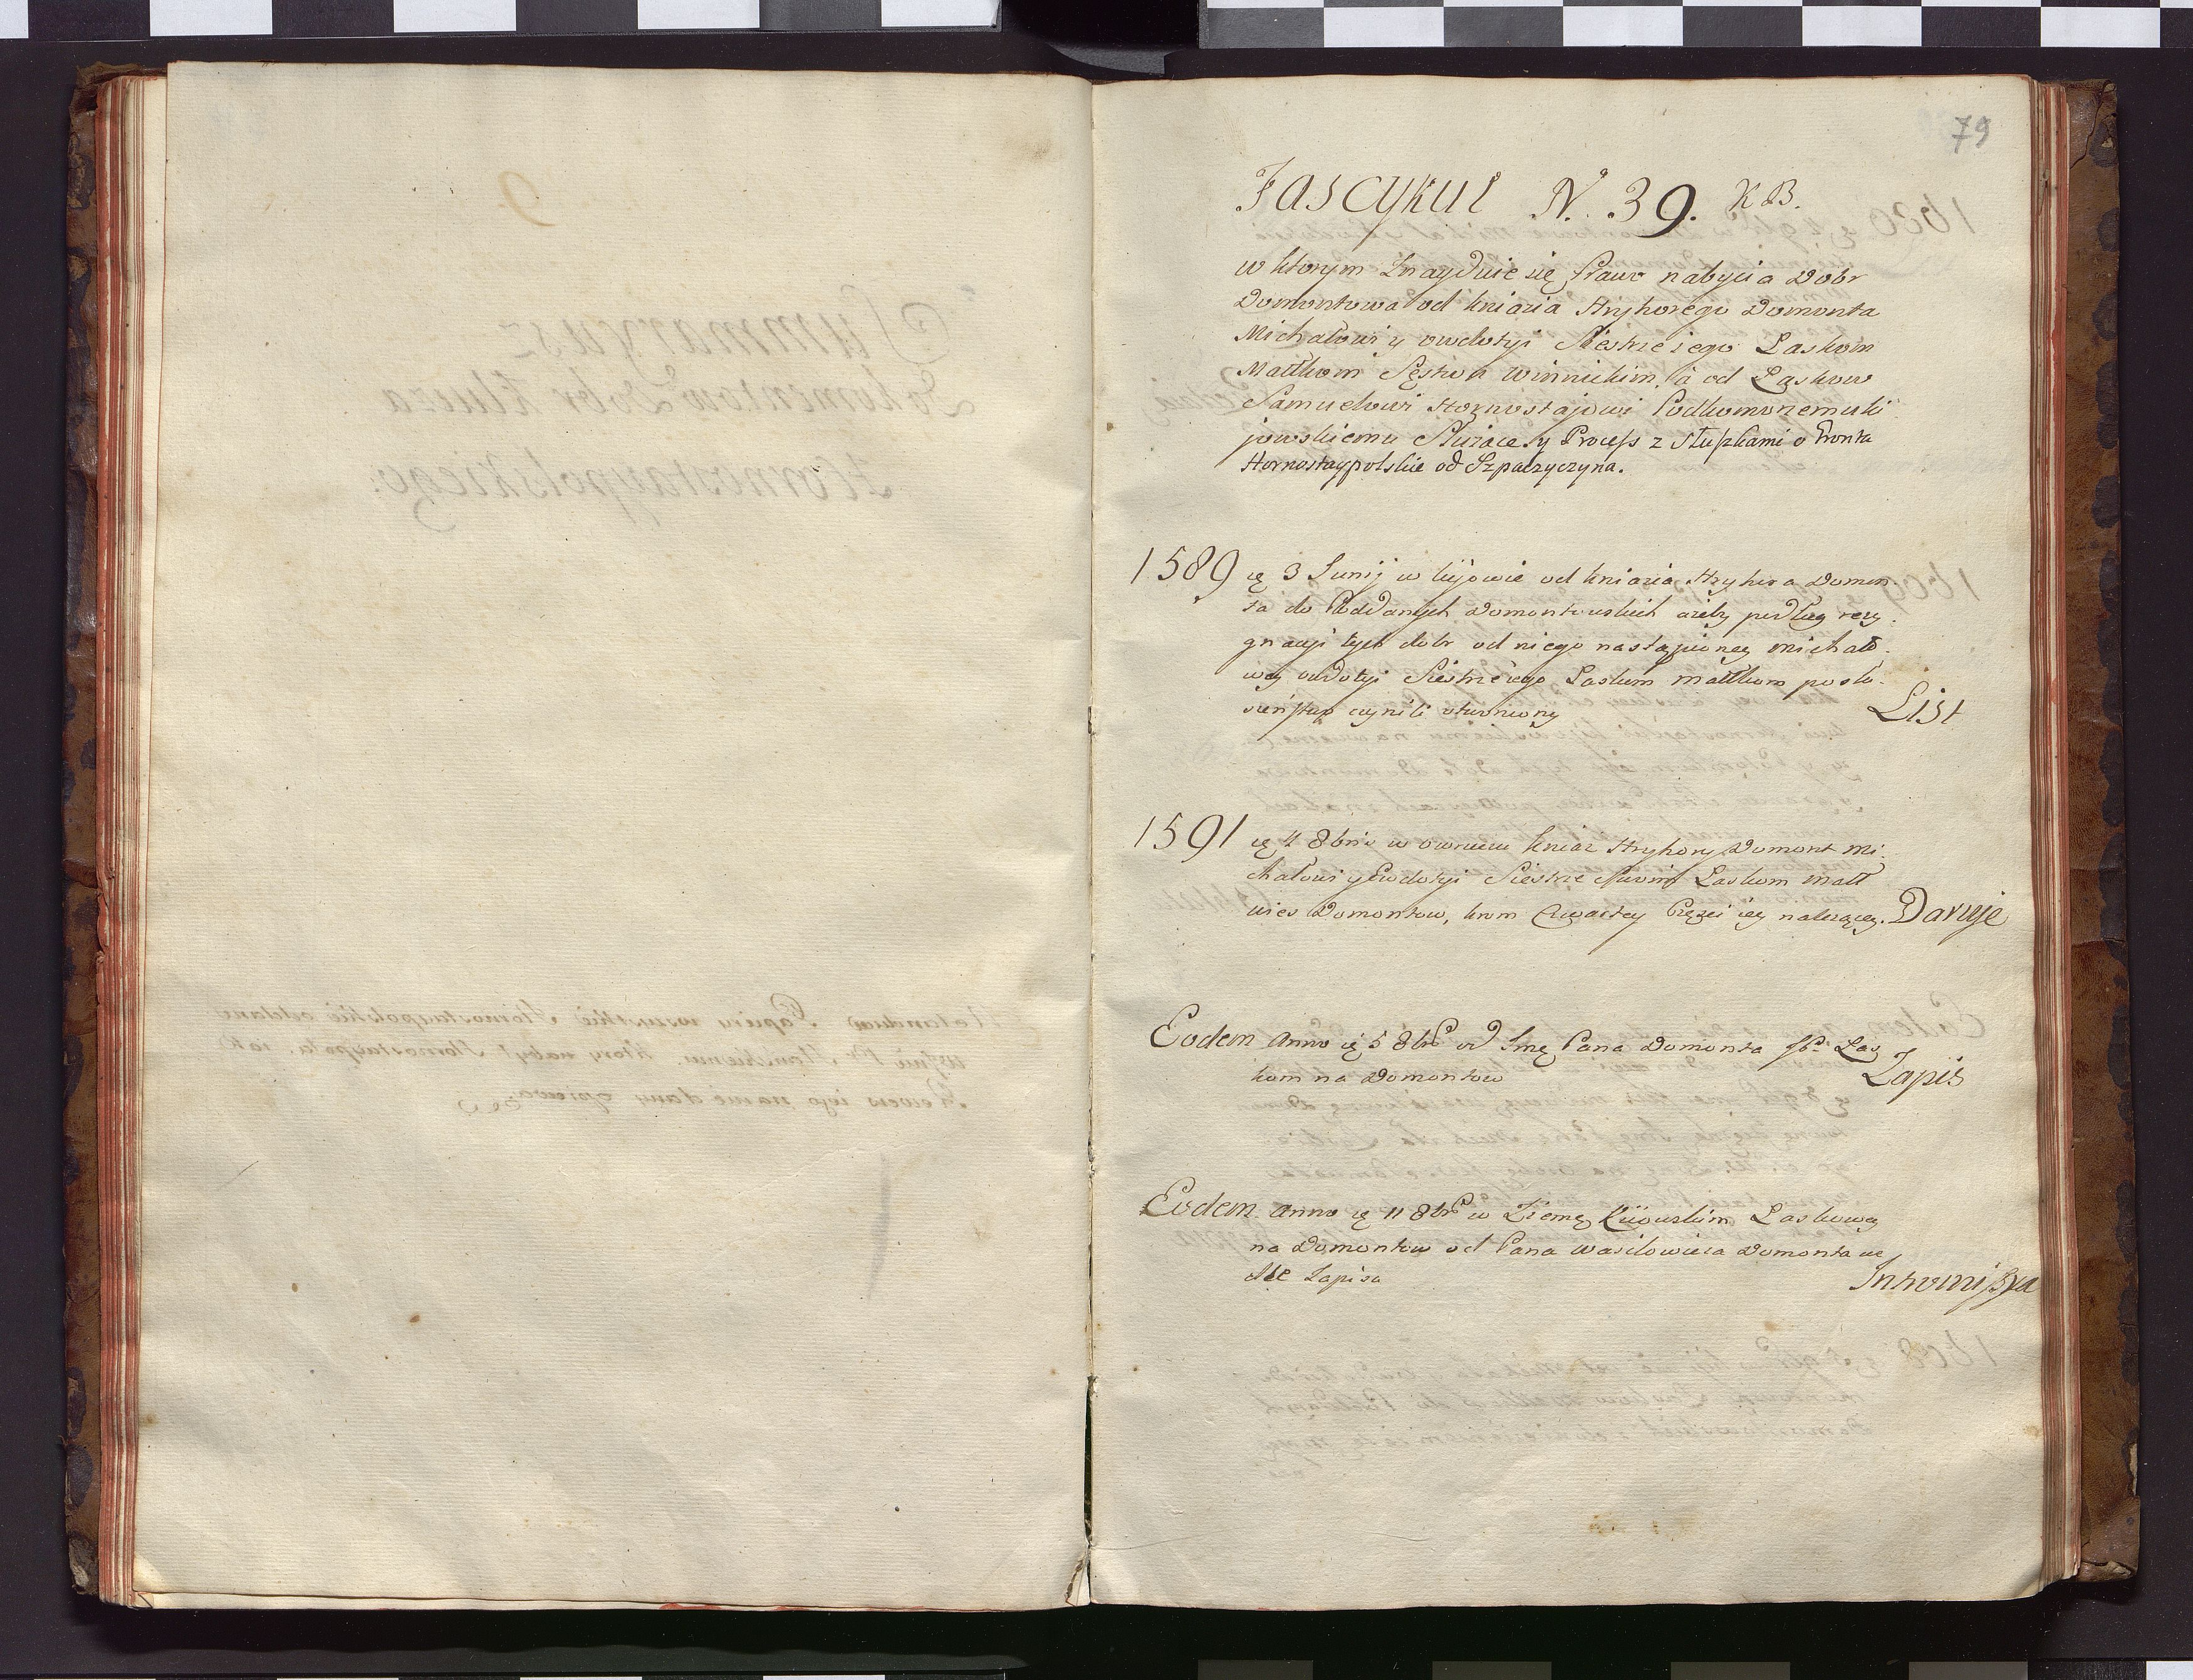 79
Fascykuł N. 39. KB.
w ktorym Znayduie się Prawo nabycia Dobr
Domontowa od kniazia Hryhorego Domonta
Michałowi y owdotyi Siestrze iego Laskom
Małkom Sęstwu Winnickim, à od Laskow
Samuelowi Hornostajowi Podkomorzemu ki
jowskiemu Służące. y Process z Słupkami o Gronta
Hornostaypolskie od Szpaczyczyna.
1589 ię 3 Junij w kijowie od kniazia Hryhora Domon
ta do Poddanych Domontowskich ażeby podług rezy
gnacyi tych dobr od niego nastąpioney Michało
wey owdotyi Siestrze iego Laskom małkom posłu
szeństwo czynili otworzony List
1591 ię 4 8bris w owruczu kniaz Hryhory Domont Mi
chałowi y Ewdotyi Siestrze Laskom mał
wies Domontow, krom Czwartey Częsci iey należącey. Daruje
Eodem Anno ię 5 8bris od Jmę Pana Domonta Las
kom na Domontow Zapis
Eodem Anno ię 11 8bris w Ziems Kiiowskim Laskowey
na Domontow od Pana Wasilowicza Domonta we
dle Zapisu Intromissya